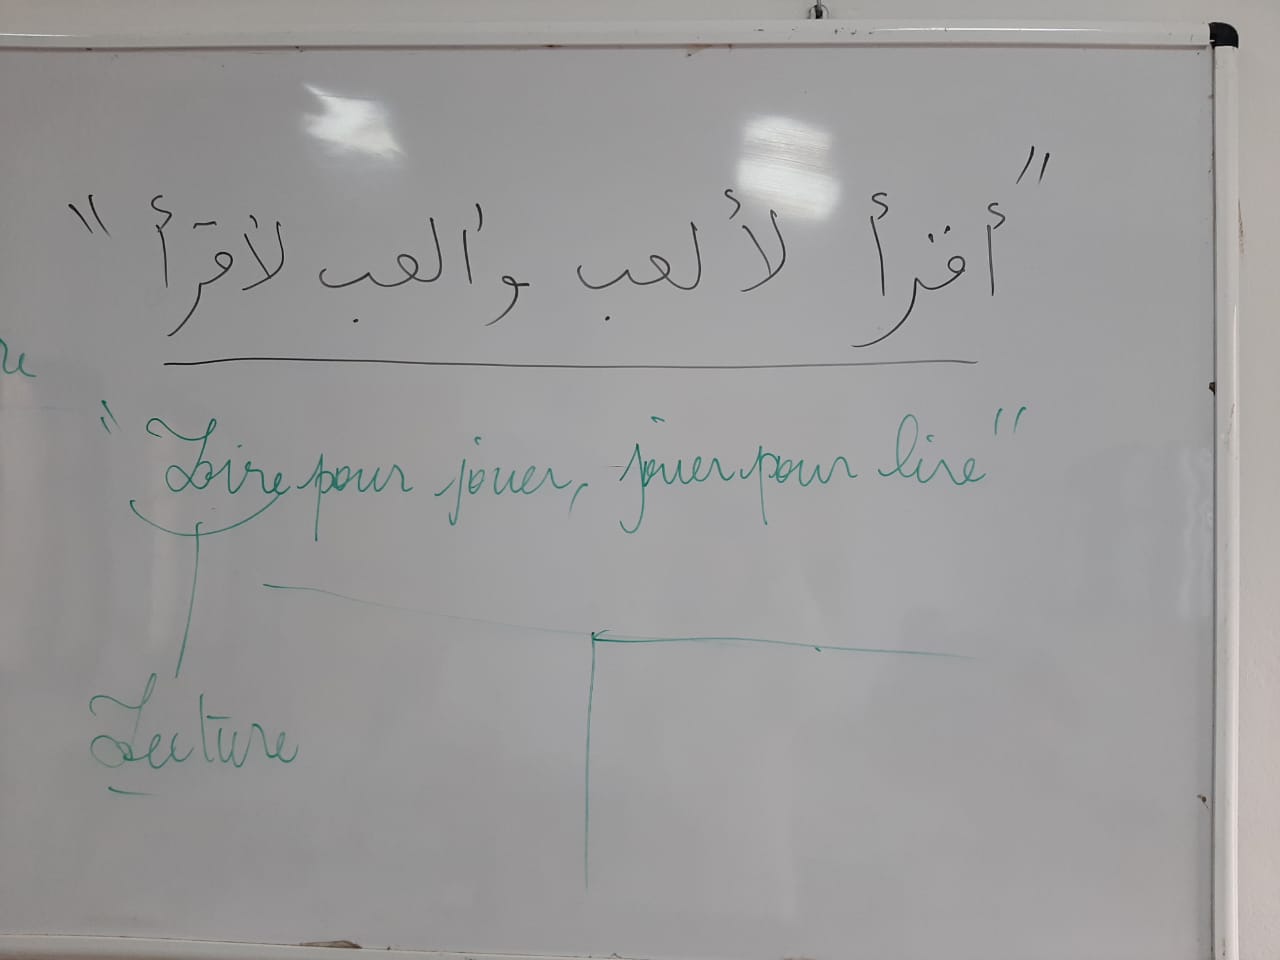 "أقرأ لألعب وألعب لأقرأ"
"Lire pour jouer, jouer pour lire"
Lecture